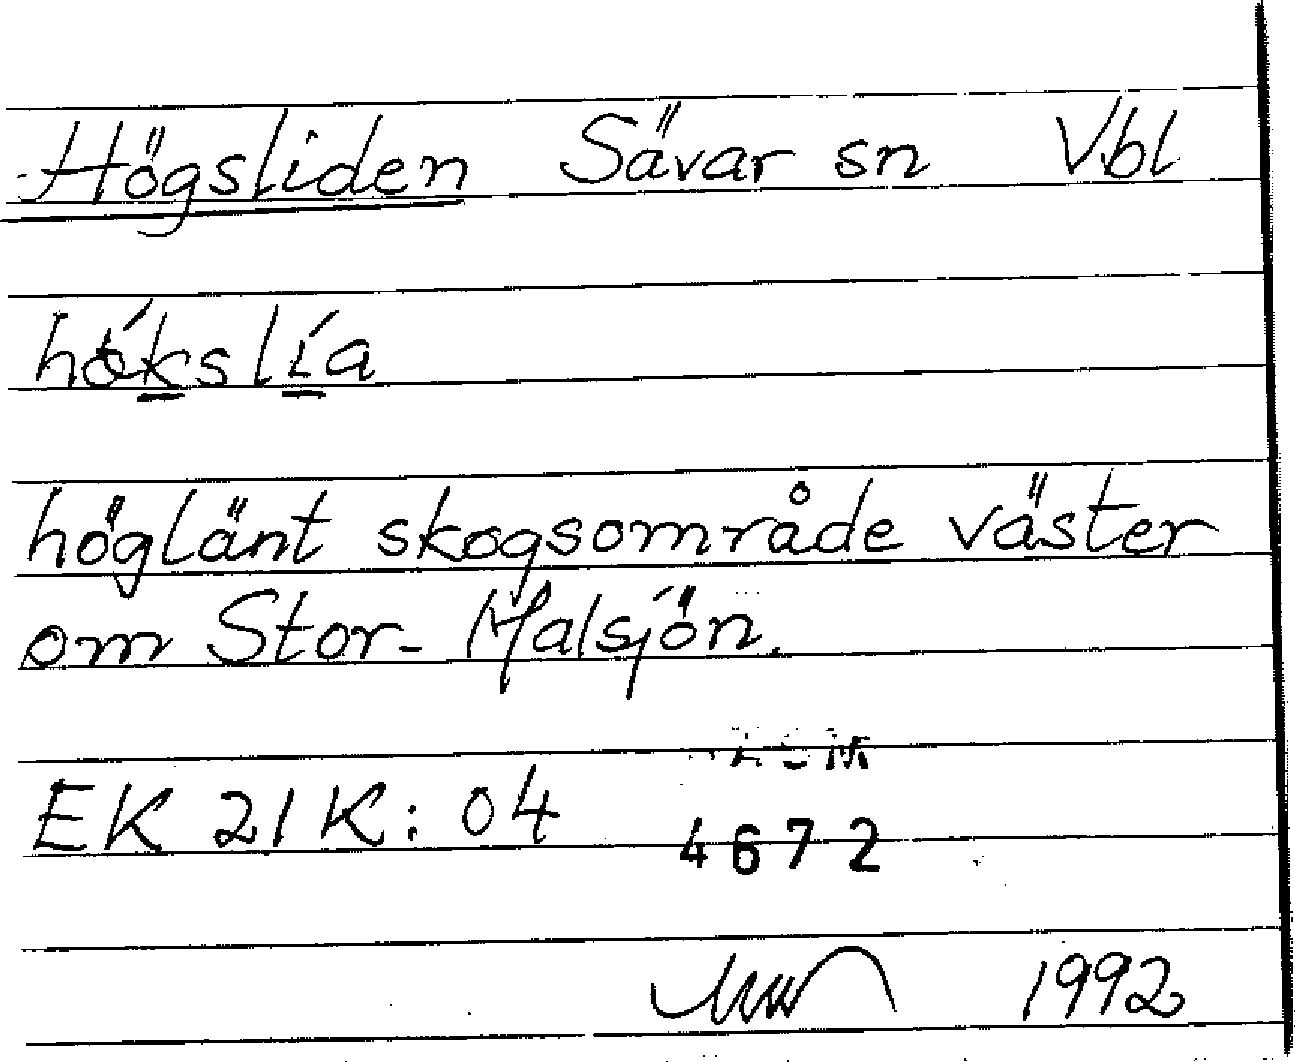 Högsliden Sävar sn Vbl
höglänt skogsområde väster
om Stor-Malsjön.
EK 21K:04
4672
1992